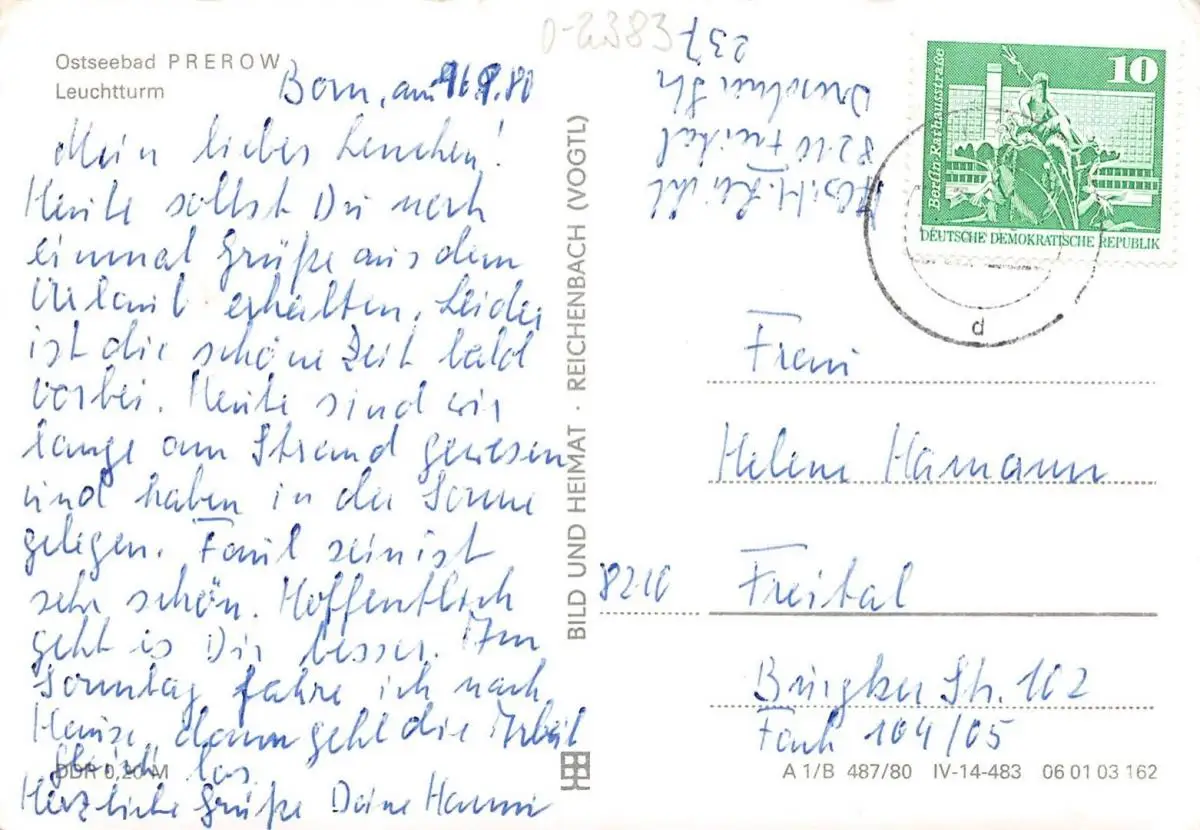 Ostseebad PREROW
Leuchtturm
Born, am 16.9.80
Mein liebes Lenchen!
Heute sollst Du noch
einmal Grüße aus dem
Urlaub erhalten. Leider
ist die schöne Zeit bald
vorbei. Heute sind wir
lange am Strand gewesen
und haben in der Sonne
gelegen. Faul sein ist
sehr schön. Hoffentlich
geht es Dir besser. Am
Sonntag fahre ich nach
Hause, dann geht die Arbeit
gleich los.
Herzliche Grüße Deine Hanni
DDR 0,20 M
BILD UND HEIMAT · REICHENBACH (VOGTL)
0-2383
8210 Freital
Dresdner Str.
237
10
Berlin, Rathausstraße
DEUTSCHE DEMOKRATISCHE REPUBLIK
d
Frau
Helene Hamann
8210 Freital
Burgker Str. 102
Fach 104/05
A 1/B 487/80 IV-14-483 06 01 03 162